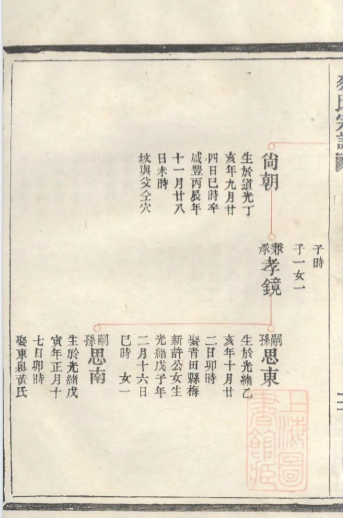 氏宗譜
子時
子一女一
兼承孝鏡
尙朝
生於道光丁
亥年九月廿
四日巳時卒
咸豐丙辰年
十一月廿八
日未時
墳與父仝穴
嗣孫思東
生於光緒乙
亥年十月廿
二日卯時
娶青田縣梅
新許公女生
光緒戊子年
二月十六日
巳時 女一
嗣孫思南
生於光緒戊
寅年正月十
七日卯時
娶東㘭黃氏
上海圖書館藏